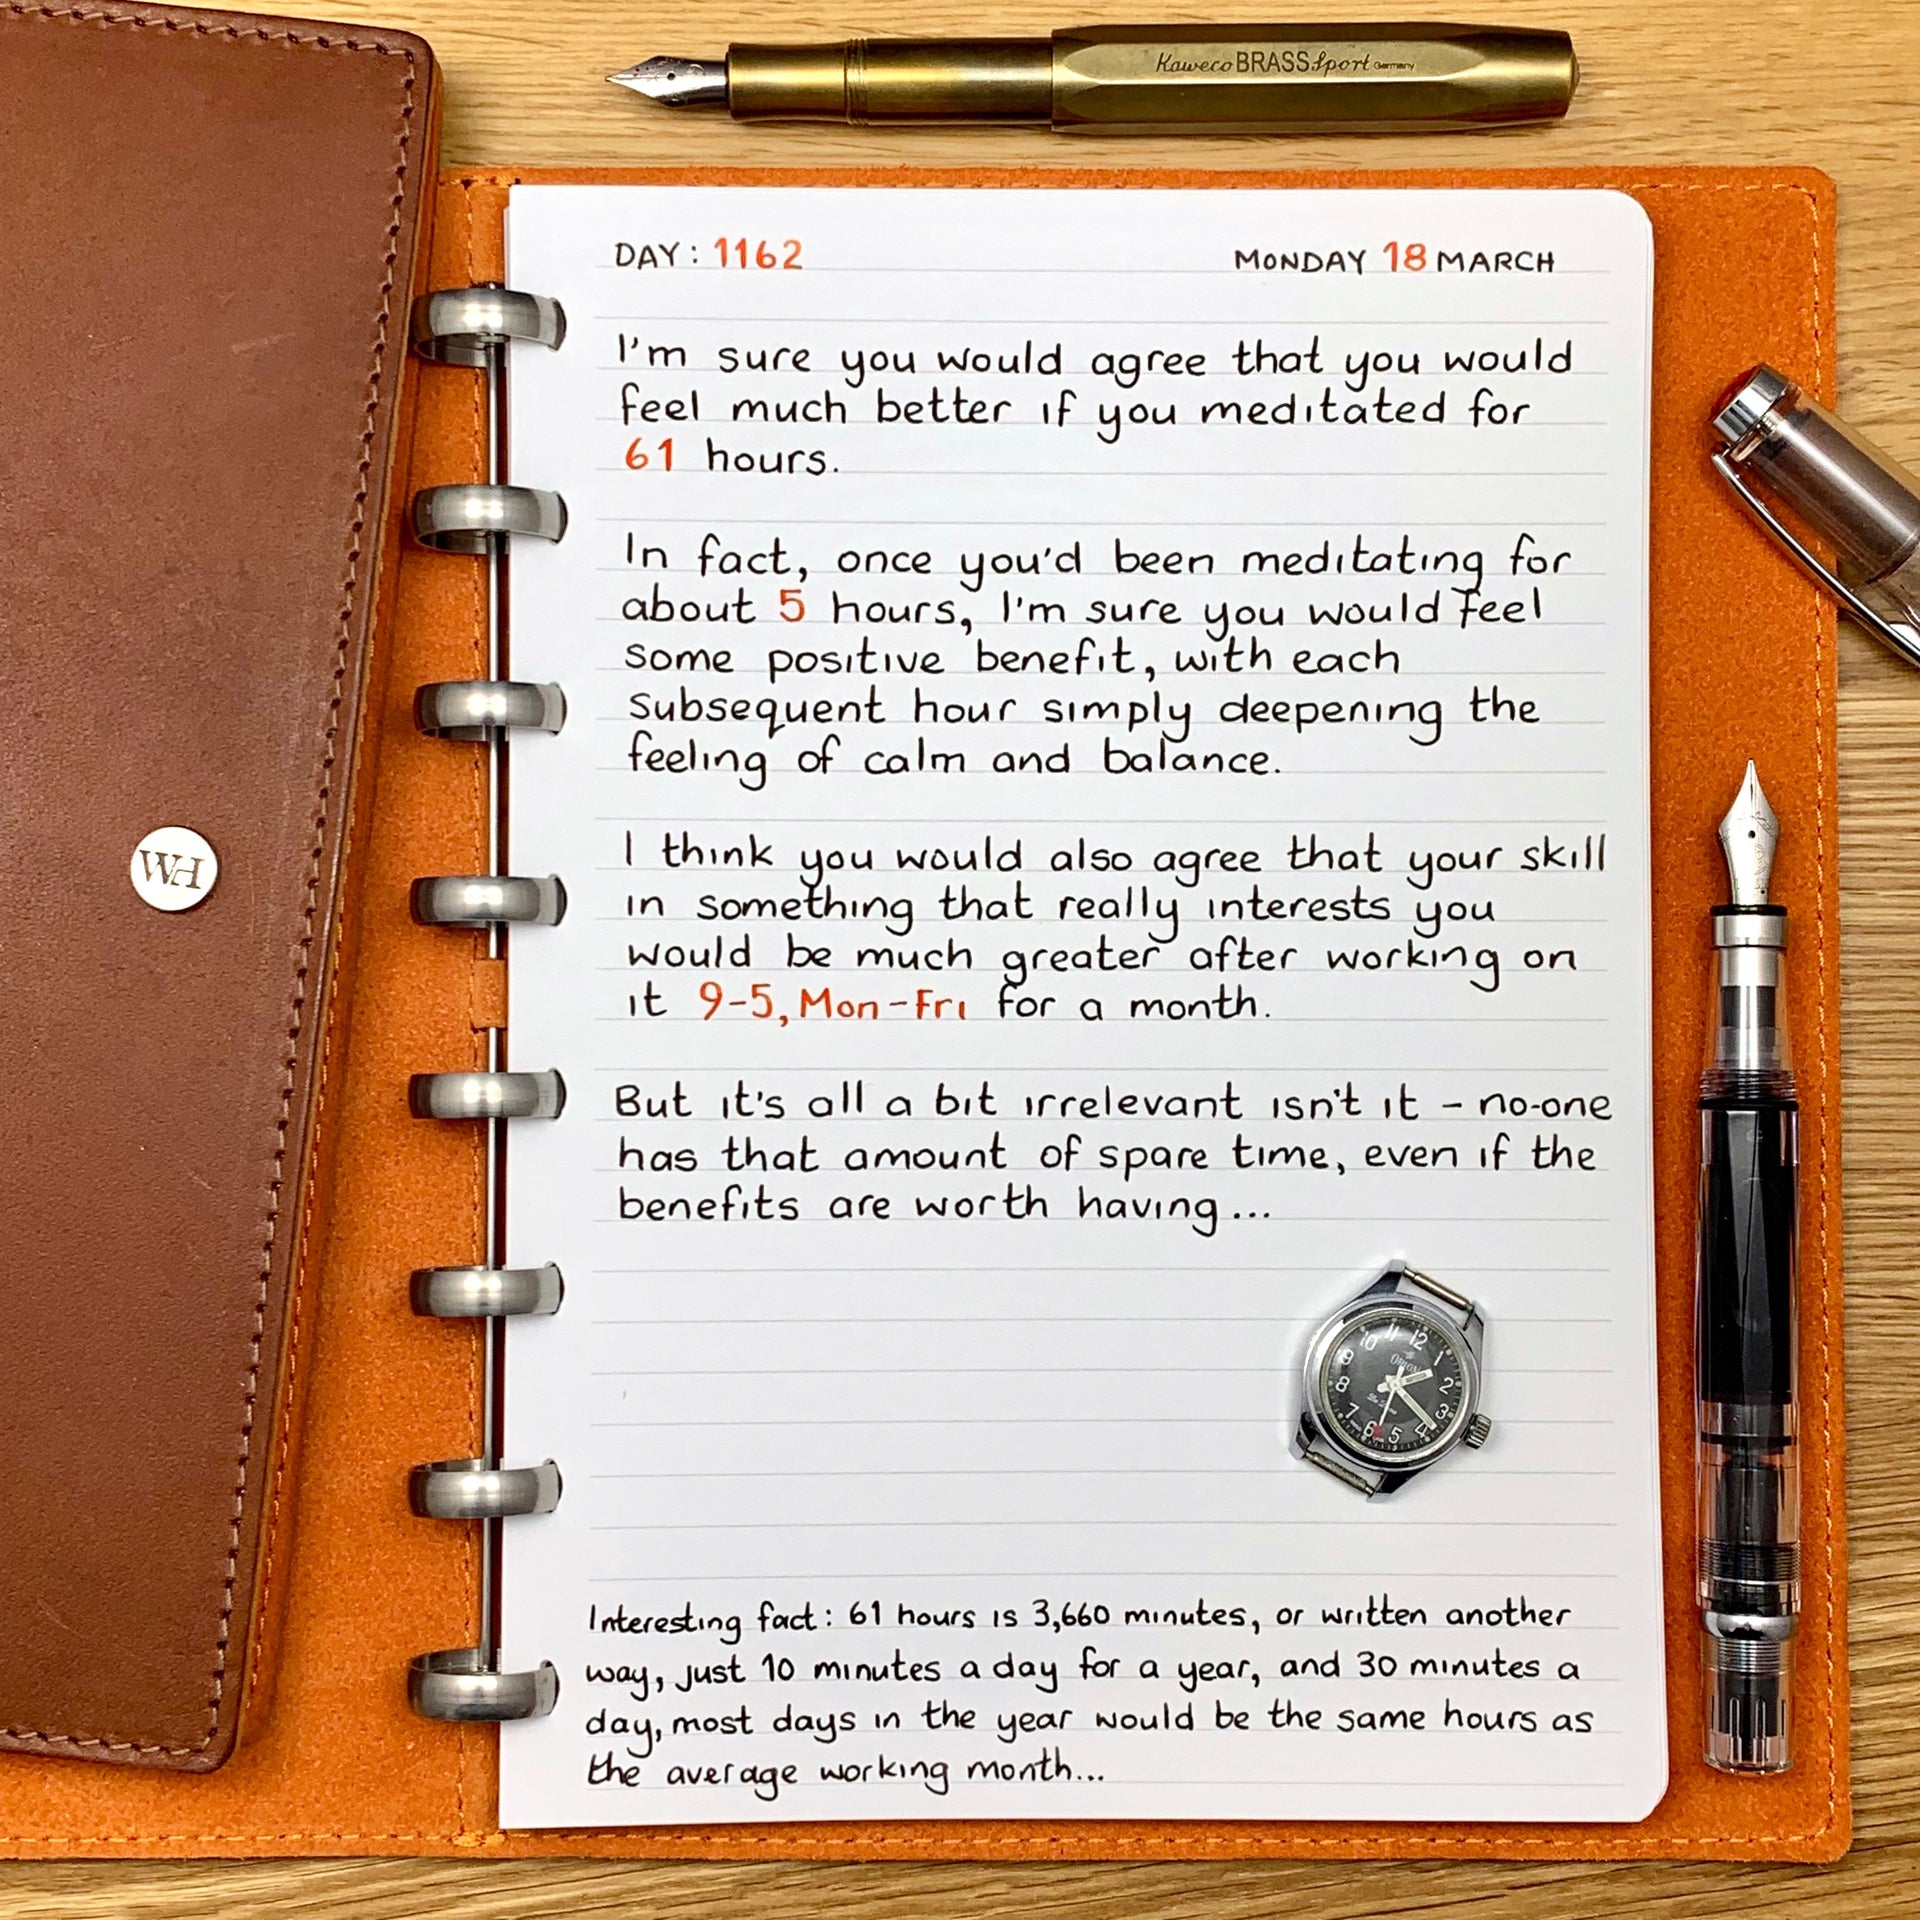 Kaweco BRASS Sport Germany
DAY: 1162
MONDAY 18 MARCH
I'm sure you would agree that you would
feel much better if you meditated for
61 hours.
In fact, once you'd been meditating for
about 5 hours, I'm sure you would feel
some positive benefit, with each
subsequent hour simply deepening the
feeling of calm and balance.
I think you would also agree that your skill
in something that really interests you
would be much greater after working on
it 9-5, Mon-Fri for a month.
But it's all a bit irrelevant isn't it - no-one
has that amount of spare time, even if the
benefits are worth having...
WH
12
1
2
3
4
5
6
7
8
9
10
11
Interesting fact: 61 hours is 3,660 minutes, or written another
way, just 10 minutes a day for a year, and 30 minutes a
day, most days in the year would be the same hours as
the average working month...